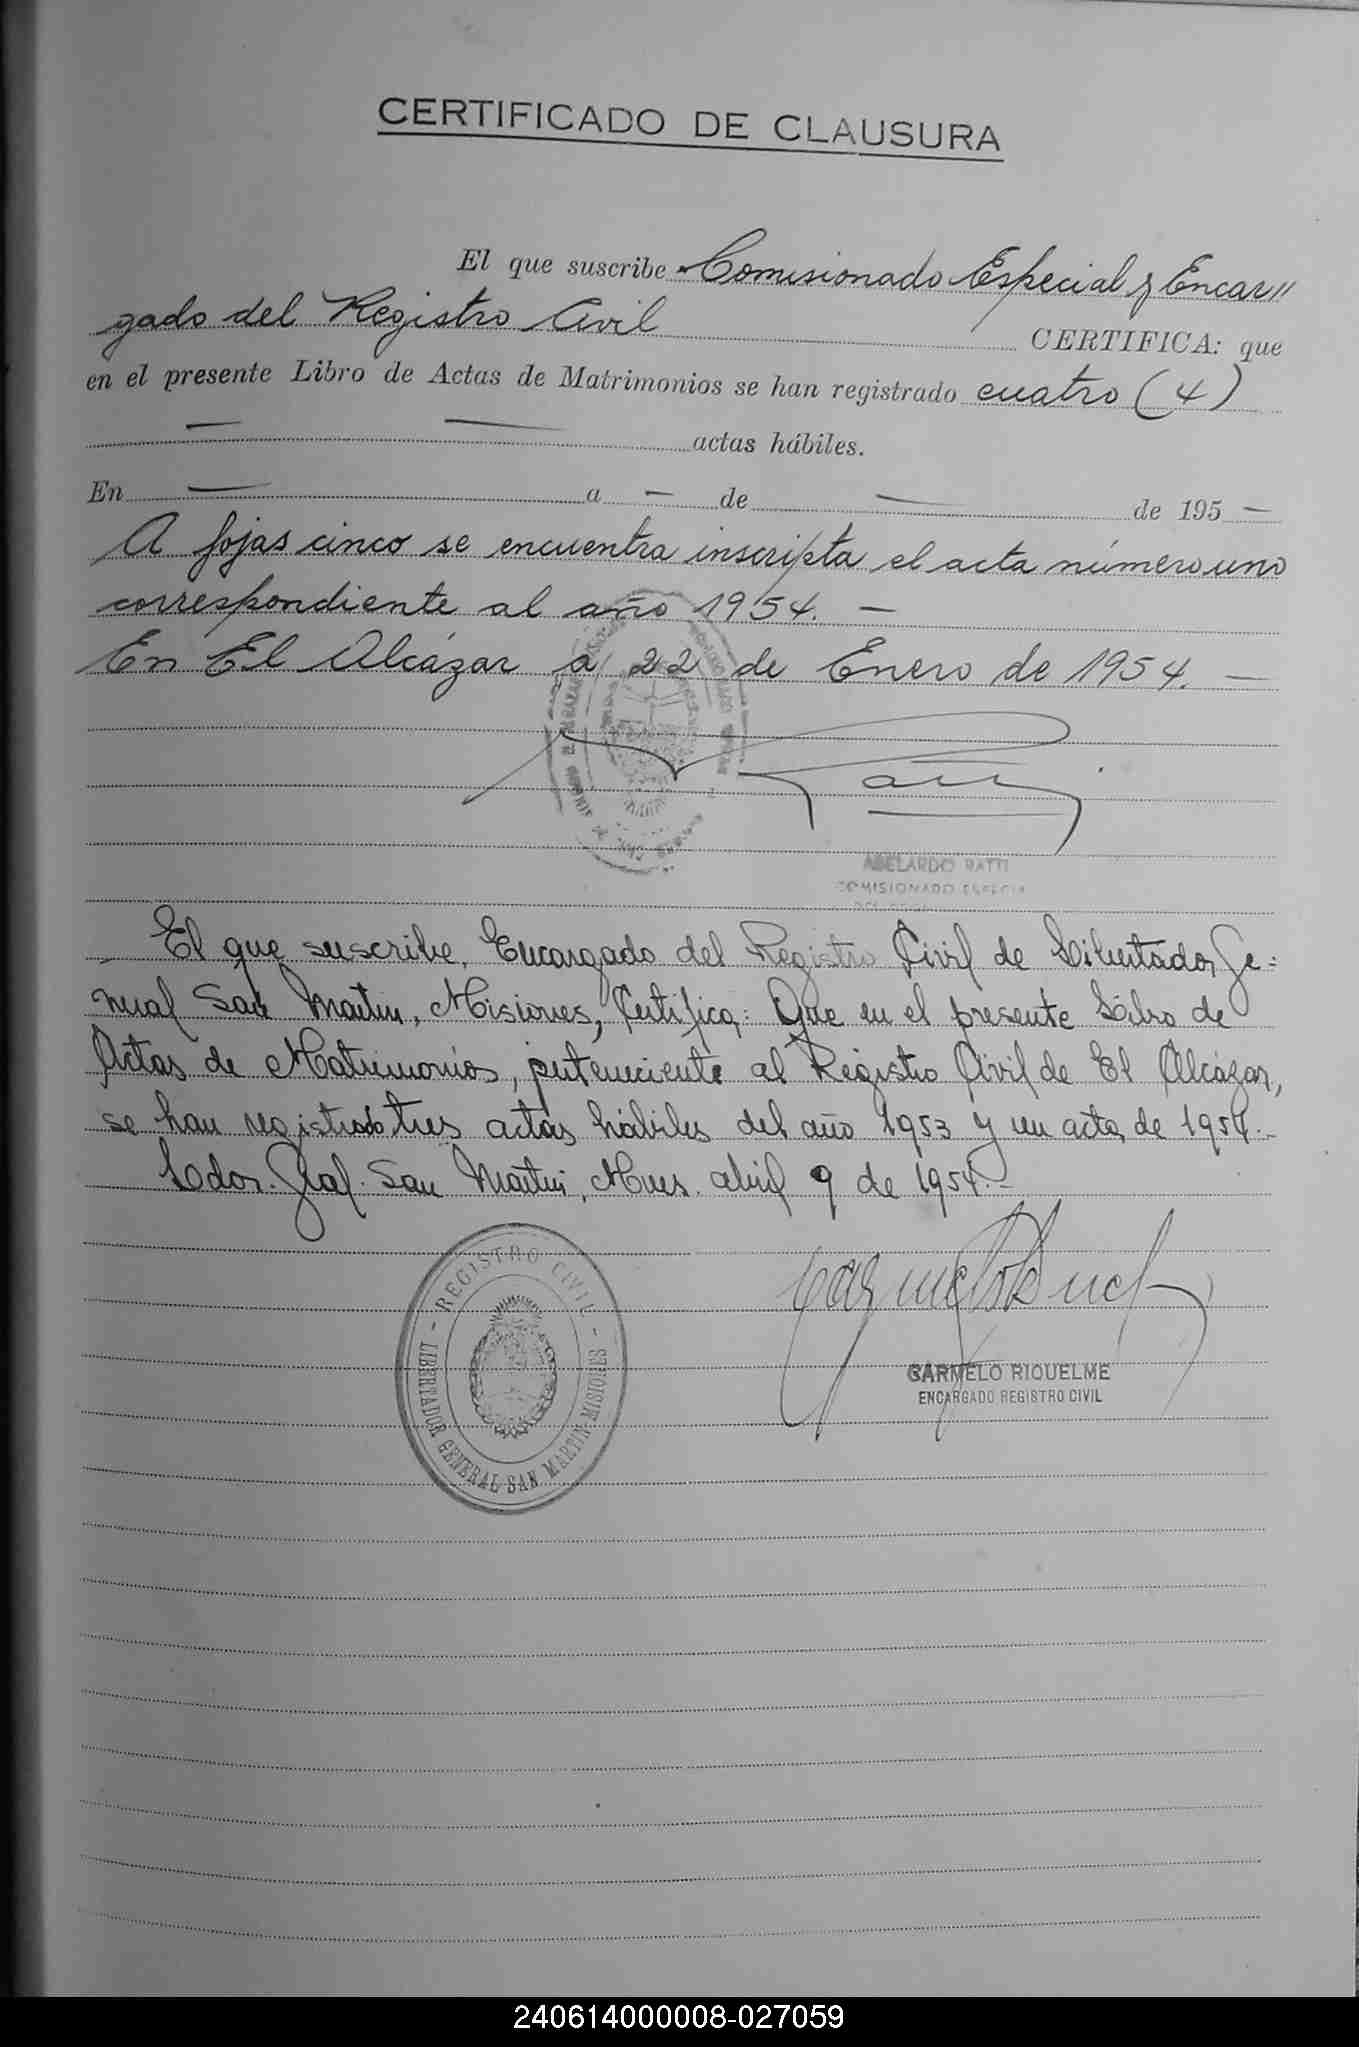 CERTIFICADO DE CLAUSURA
El que suscribe Comisionado Especial y Encar//
gado del Registro Civil CERTIFICA: que
en el presente Libro de Actas de Matrimonios se han registrado cuatro (4)
— — actas hábiles.
En — a — de — de 195 —
A fojas cinco se encuentra inscripta el acta número uno
correspondiente al año 1954. —
En El Alcázar a 22 de Enero de 1954. —
Ratti
ABELARDO RATTI
COMISIONADO ESPECIAL
El que suscribe, Encargado del Registro Civil de Libertador Ge=
neral San Martin, Misiones, Certifica: Que en el presente Libro de
Actas de Matrimonios, perteneciente al Registro Civil de El Alcázar,
se han registrado tres actas hábiles del año 1953 y un acta de 1954.-
Ldor. Gral. San Martin, Mnes. abril 9 de 1954.-
REGISTRO CIVIL
LIBERTADOR GENERAL SAN MARTIN MISIONES
CARMELO RIQUELME
ENCARGADO REGISTRO CIVIL
240614000008-027059